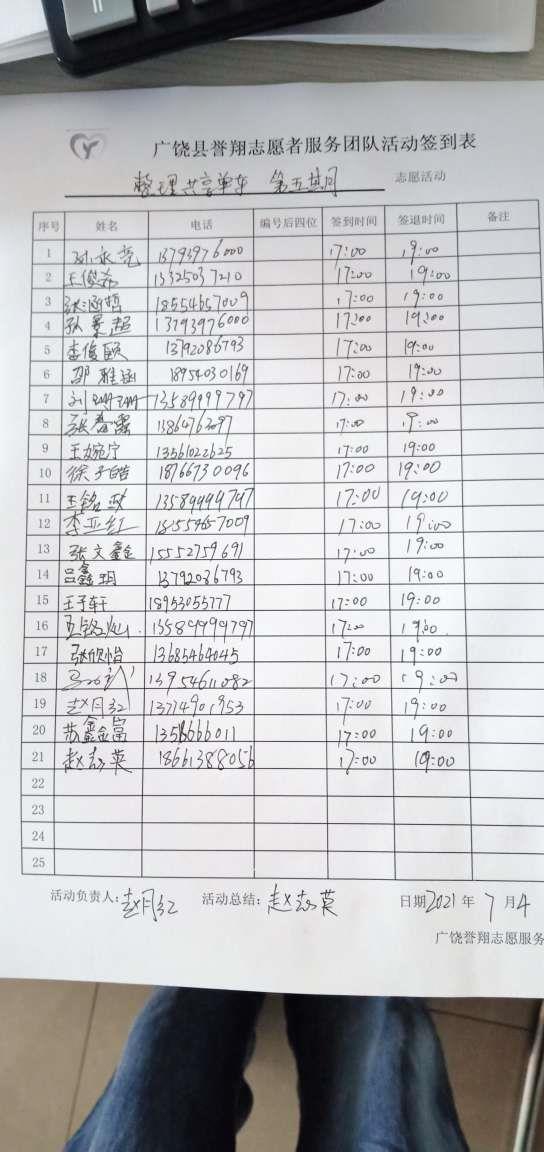 广饶县誉翔志愿者服务团队活动签到表
整理共享单车 第五期 志愿活动
序号 姓名 电话 编号后四位 签到时间 签退时间 备注
1 孙永亮 13793976000 17:00 19:00
2 王俊希 13325037210 17:00 19:00
3 张涵哲 18554657009 17:00 19:00
4 孙景超 13793976000 17:00 19:00
5 李俊颐 13792086793 17:00 19:00
6 邵雅涵 18954030169 17:00 19:00
7 刘珊珊 13589999797 17:00 19:00
8 17:00 19:00
9 王婉宁 13561022625 17:00 19:00
10 徐子皓 18766730096 17:00 19:00
11 王铭 17:00 19:00
12 李亚红 18554657009 17:00 19:00
13 张文鑫 15552759691 17:00 19:00
14 吕鑫玥 13792086793 17:00 19:00
15 王子轩 18953055777 17:00 19:00
16 王铭灿 13589999797 17:00 19:00
17 赵欣怡 13685464045 17:00 19:00
18 13954611082 17:00 19:00
19 赵月红 13714901953 17:00 19:00
20 苏鑫富 17:00 19:00
21 赵志英 18661388056 17:00 19:00
22
23
24
25
活动负责人: 赵月红 活动总结: 赵志英 日期 2021 年 7 月 4
广饶誉翔志愿服务